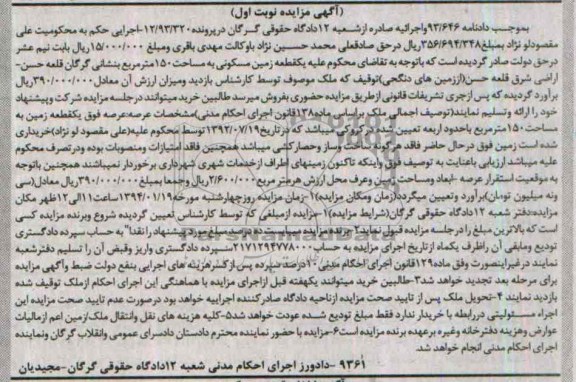 (آگهی مزایده نوبت اول)
بموجب دادنامه ۹۳/۶۴۶واجرائیه صادره ازشعبه ۱۲دادگاه حقوقی گرگان درپرونده۱۲/۹۳/۳۲۰-اجرایی حکم به محکومیت علی
مقصودلو نژاد بمبلغ۳۵۶/۶۹۴/۳۴۸ریال درحق صادقعلی محمد حسین نژاد باوکالت مهدی باقری ومبلغ ۱۵/۰۰۰/۰۰۰ریال بابت نیم عشر
درحق دولت صادر گردیده است که باتوجه به تقاضای محکوم علیه یکقطعه زمین مسکونی به مساحت ۱۵۰مترمربع بنشانی گرگان قلعه حسن-
اراضی شرق قلعه حسن(اززمین های دنگچی)توقیف که ملک موصوف توسط کارشناس بازدید ومیزان ارزش آن معادل۳۹۰/۰۰۰/۰۰۰ریال
برآورد گردیده که پس ازجری تشریفات قانونی ازطریق مزایده حضوری بفروش میرسد طالبین خرید میتوانند درجلسه مزایده شرکت وپیشنهاد
خود را ارائه وتسلیم نمایند(توصیف اجمالی ملک براساس ماده۱۳۸قانون اجرای احکام مدنی)مشخصات عرصه:عرصه فوق یکقطعه زمین به
مساحت ۱۵۰مترمربع باحدود اربعه تعیین شده در کروکی میباشد که درتاریخ ۱۳۹۲/۰۷/۱۹توسط محکوم علیه(علی مقصود لو نژاد)خریداری
شده است زمین فوق درحال حاضر فاقد هرگونه ساخت وساز وحصارکشی میباشد همچنین فاقد امتیازات ومنصوبات بوده ودرتصرف محکوم
علیه میباشد ارزیابی باعنایت به توصیف فوق واینکه تاکنون زمینهای اطراف ازخدمات شهری شهرداری برخوردار نمیباشند همچنین باتوجه
به موقعیت استقرار عرصه -ابعاد ومساحت زمین وعرف محل ارزش هرمتر مربع ۲/۶۰۰/۰۰۰ریال وجمعا بمبلغ۳۹۰/۰۰۰/۰۰۰ریال معادل(سی
ونه میلیون تومان)برآورد وتعیین میگردد(زمان ومکان مزایده)۱-زمان مزایده روزچهارشنبه مورخه۱۳۹۴/۰۱/۱۹ساعت۱۱الی۱۲ظهر مکان
مزایده:دفتر شعبه ۱۲دادگاه حقوقی گرگان(شرایط مزایده)۱-مزایده ازمبلغی که توسط کارشناس تعیین گردیده شروع وبرنده مزایده کسی
است که بالاترین مبلغ را درجلسه مزایده قبول نماید۲-برنده مزایده میبایست ده درصد مبلغ پیشنهاد را نقدا" به حساب سپرده دادگستری
تودیع ومابقی آن راظرف یکماه ازتاریخ اجرای مزایده به حساب۲۱۷۱۲۹۴۷۷۸۰۰۰سپرده دادگستری واریز وقبض آن را تسلیم دفترشعبه
نمایند درغیراینصورت وفق ماده۱۲۹قانون اجرای احکام مدنی ۱۰درصد سپرده پس ازکسرهزینه های اجرایی بنفع دولت ضبط وآگهی مزایده
برای مرحله بعد تجدید خواهد شد۳-طالبین خرید میتوانند یکهفته قبل ازاجرای مزایده با هماهنگی این اجرای احکام ازملک توقیف شده
بازدید نمایند ۴-تحویل ملک پس از تایید صحت مزایده ازناحیه دادگاه صادرکننده اجراییه خواهد بود درصورت عدم تایید صحت مزایده این
اجراء مسئولیتی دررابطه با خریدار ندارد فقط مبلغ تودیع شده عودت خواهد شد۵-کلیه هزینه های نقل وانتقال ملک/زمین اعم ازمالیات
عوارض وهزینه دفترخانه وغیره برعهده برنده مزایده است۶-مزایده با حضور نماینده محترم دادستان دادسرای عمومی وانقلاب گرگان ونماینده
اجرای احکام مدنی انجام خواهد شد.
۹۳۶۱ -دادورز اجرای احکام مدنی شعبه ۱۲دادگاه حقوقی گرگان-مجیدیان